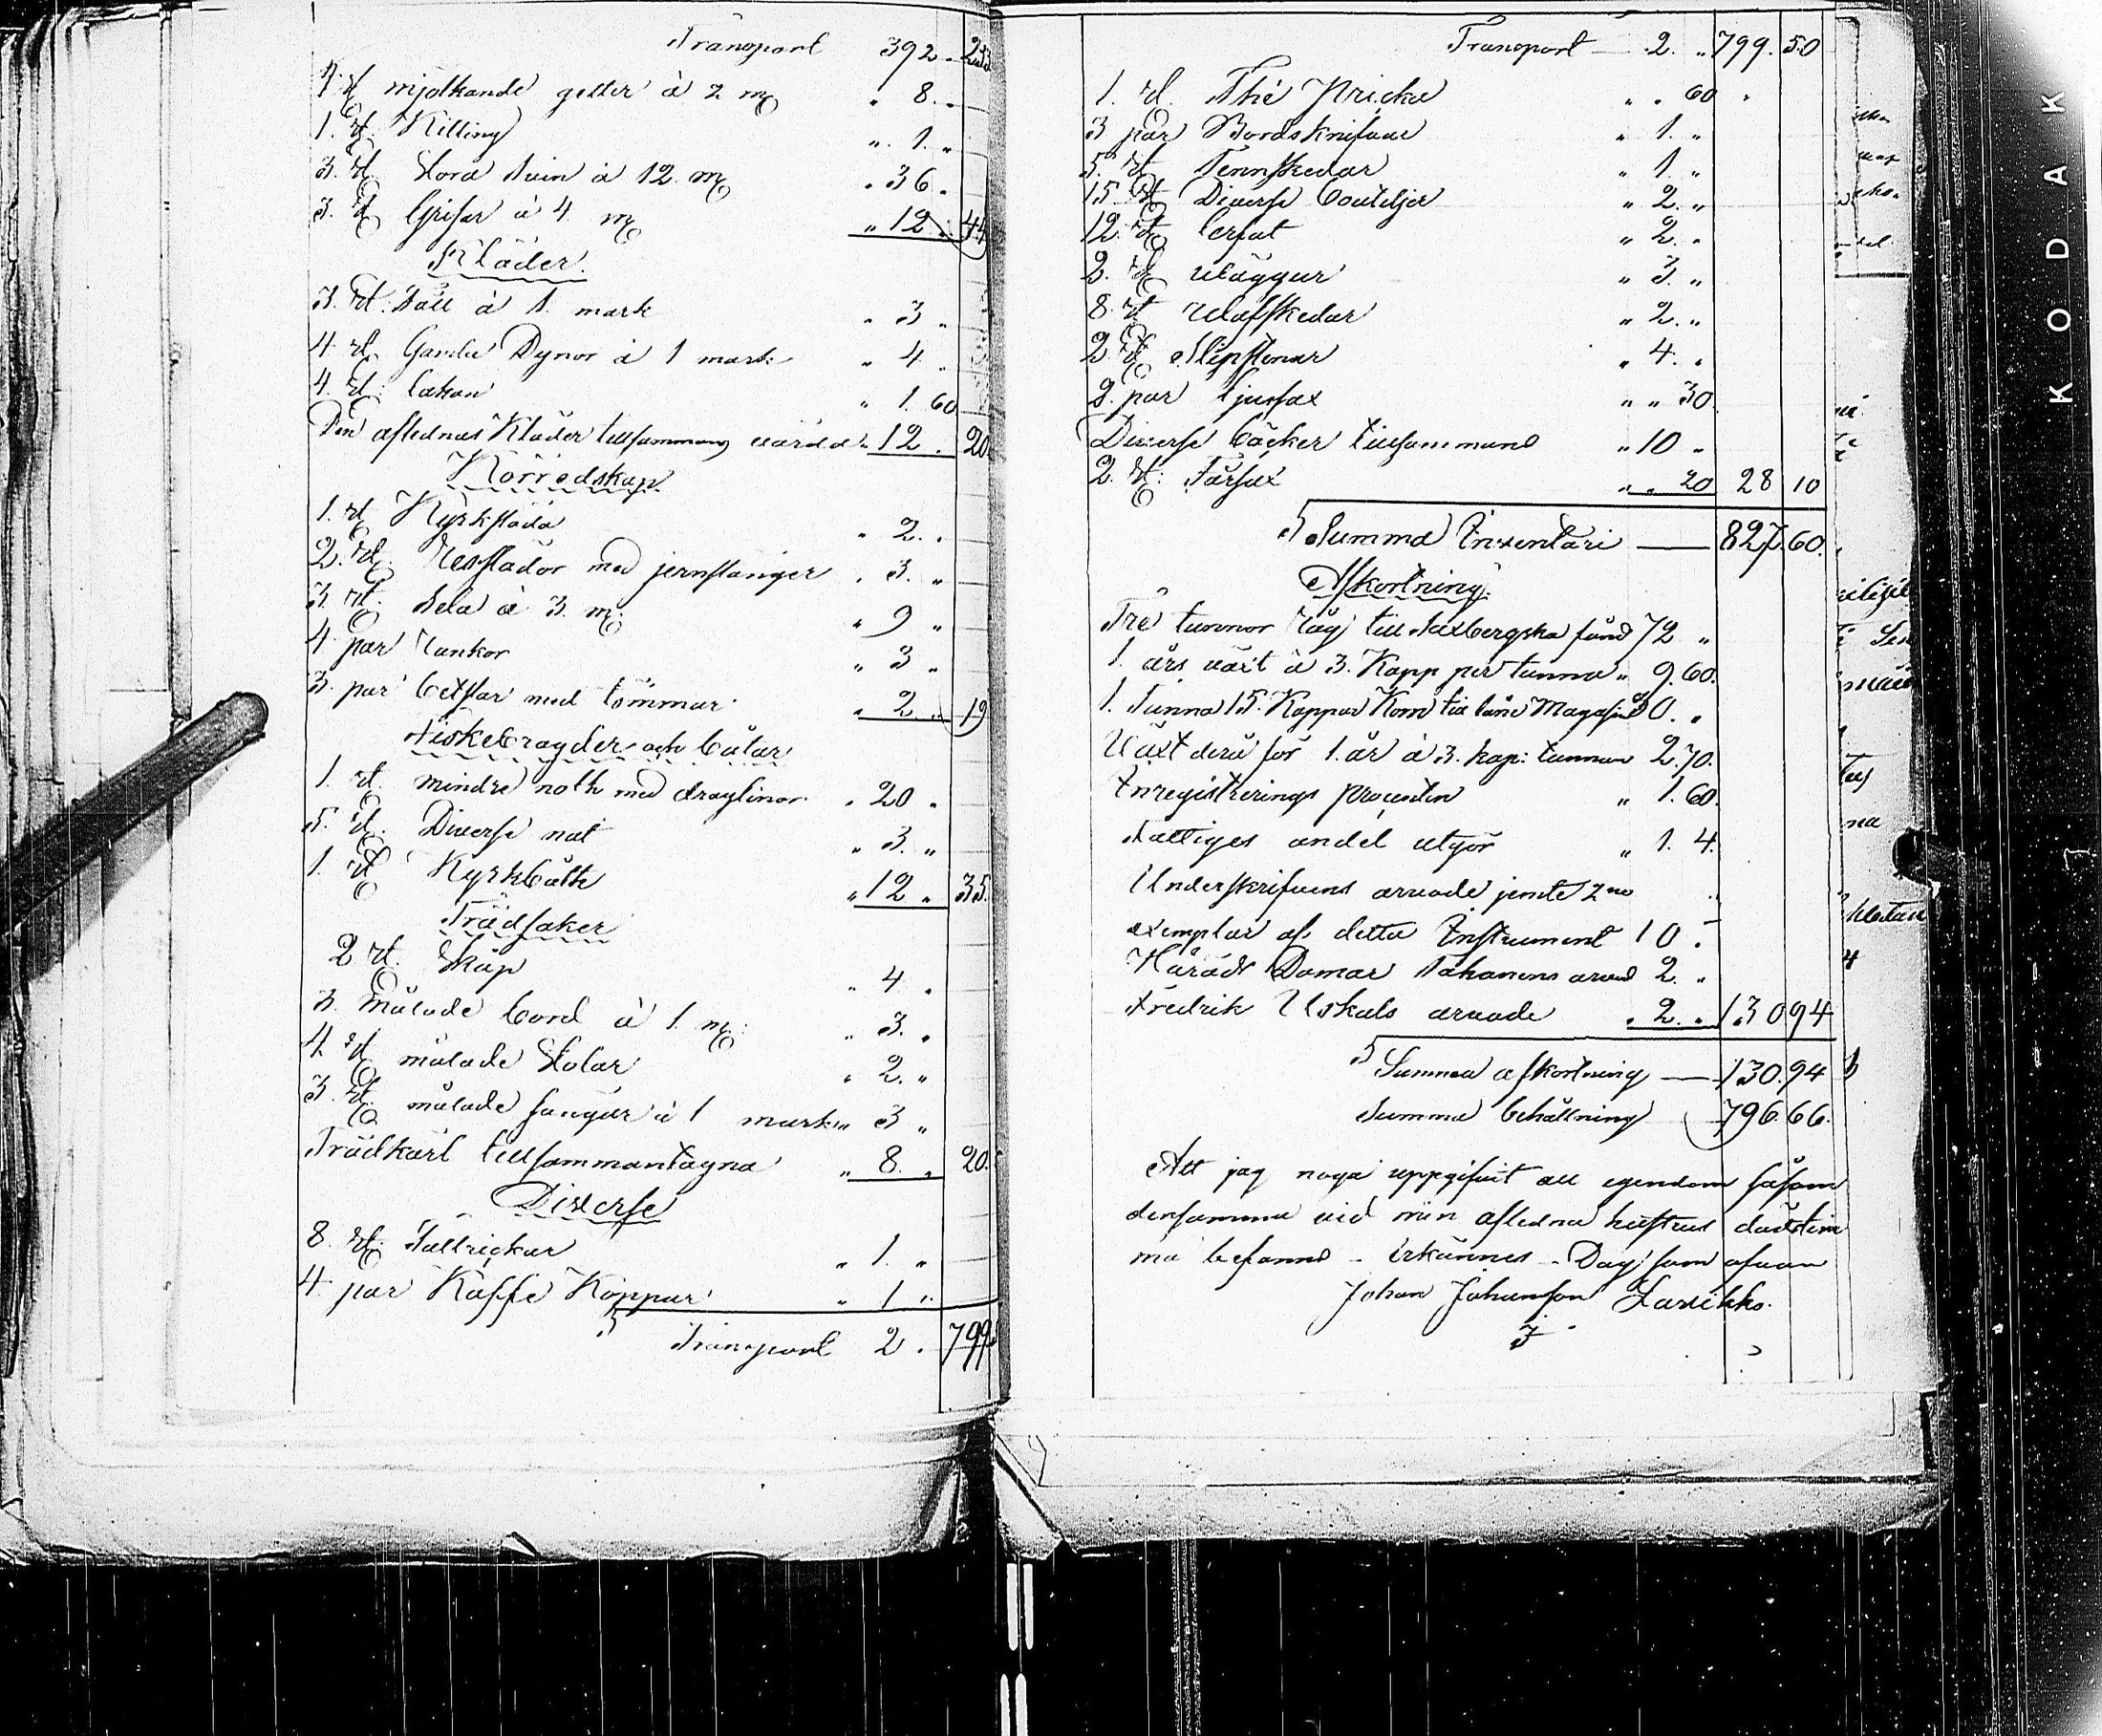 Transport 392 „
4 st mjölkande getter à 2 mk „ 8. „
1. st. Killing „ 1. „
3. st. Stora Svin à 12 mk „ 36 „
3. st Grisar à 4 mk „ 12 „ 44
Kläder.
3. st. Fäll à 1. mark „ 3 „
4 st. Gamla Dynor à 1 mark „ 4 „
4. st. lakan „ 1. 60
Den aflednas Kläder tillsammans värda „ 12 „ 20.
Körredskap
1. st Kyrksläda „ 2. „
2. st. Resslädor med jernstänger „ 3. „
3 st. Sela à 3. mk: „ 9 „
4 par Rankor „ 3 „
3. par betslar med tömmar „ 2 „ 19
Fiskebragder och båtar
1. st. mindre noth med draglinor „ 20 „
5. st. Diverse nät „ 3. „
1. st Kyrkbåth „ 12 „ 35.
Trädsaker
2 st. Skåp „ 4 „
3. målade bord à 1 mk: „ 3. „
4 st målade Stolar „ 2. „
3. st. målade sängar à 1 mark „ 3 „
Trädkärl tillsammantagna „ 8. „ 20.
Diverse
8. st. Tallrickar „ 1. „
4 par Kaffe Koppar „ 1 „
Transport 2 „ 799
Transport 2. „ 799. 50
1. st. Thé Bricka „ „ 60
3 par Bordsknifvar „ 1. „
5. st Tennskedar „ 1. „
15. st Diverse bouteljer „ 2. „
12. st. lerfat „ 2. „
2. st väggur „ 3. „
8. st Slefskedar „ 2. „
2 st Slipstenar „ 4. „
2. par ljussax „ „ 30
Diverse böcker tillsammans „ 10 „
2. st. Fårsax „ „ 20 28 10
Summa Inventari 827. 60.
Afkortning.
Tre tunnor råg till Saxbergska fond 72 „
1. års växt à 3. Kapp per tunna „ 9. 60.
1. Tunna 15. Kappar Korn till låne Magasin 30. „
Växt derå för 1. år à 3. kap: tunnan 2. 70.
Inregistrerings procenten „ 1. 60.
Fattiges andel utgör „ 1. 4.
Underskrifvens arvode jemte 2ne
exemplar af detta Instrument 10. „
Härads Domar Tahanens arvod 2. „
Fredrik Uskals arvode „ 2. „ 130 94
Summa afkortning 130. 94
Summa behållning 796. 66.
Att jag noga uppgifvit all egendom såsom
densamma vid min afledna hustrus dödstim
ma befanns – erkännes – Dag som ofvan
Johan Johansson Larikko.
K O D A K